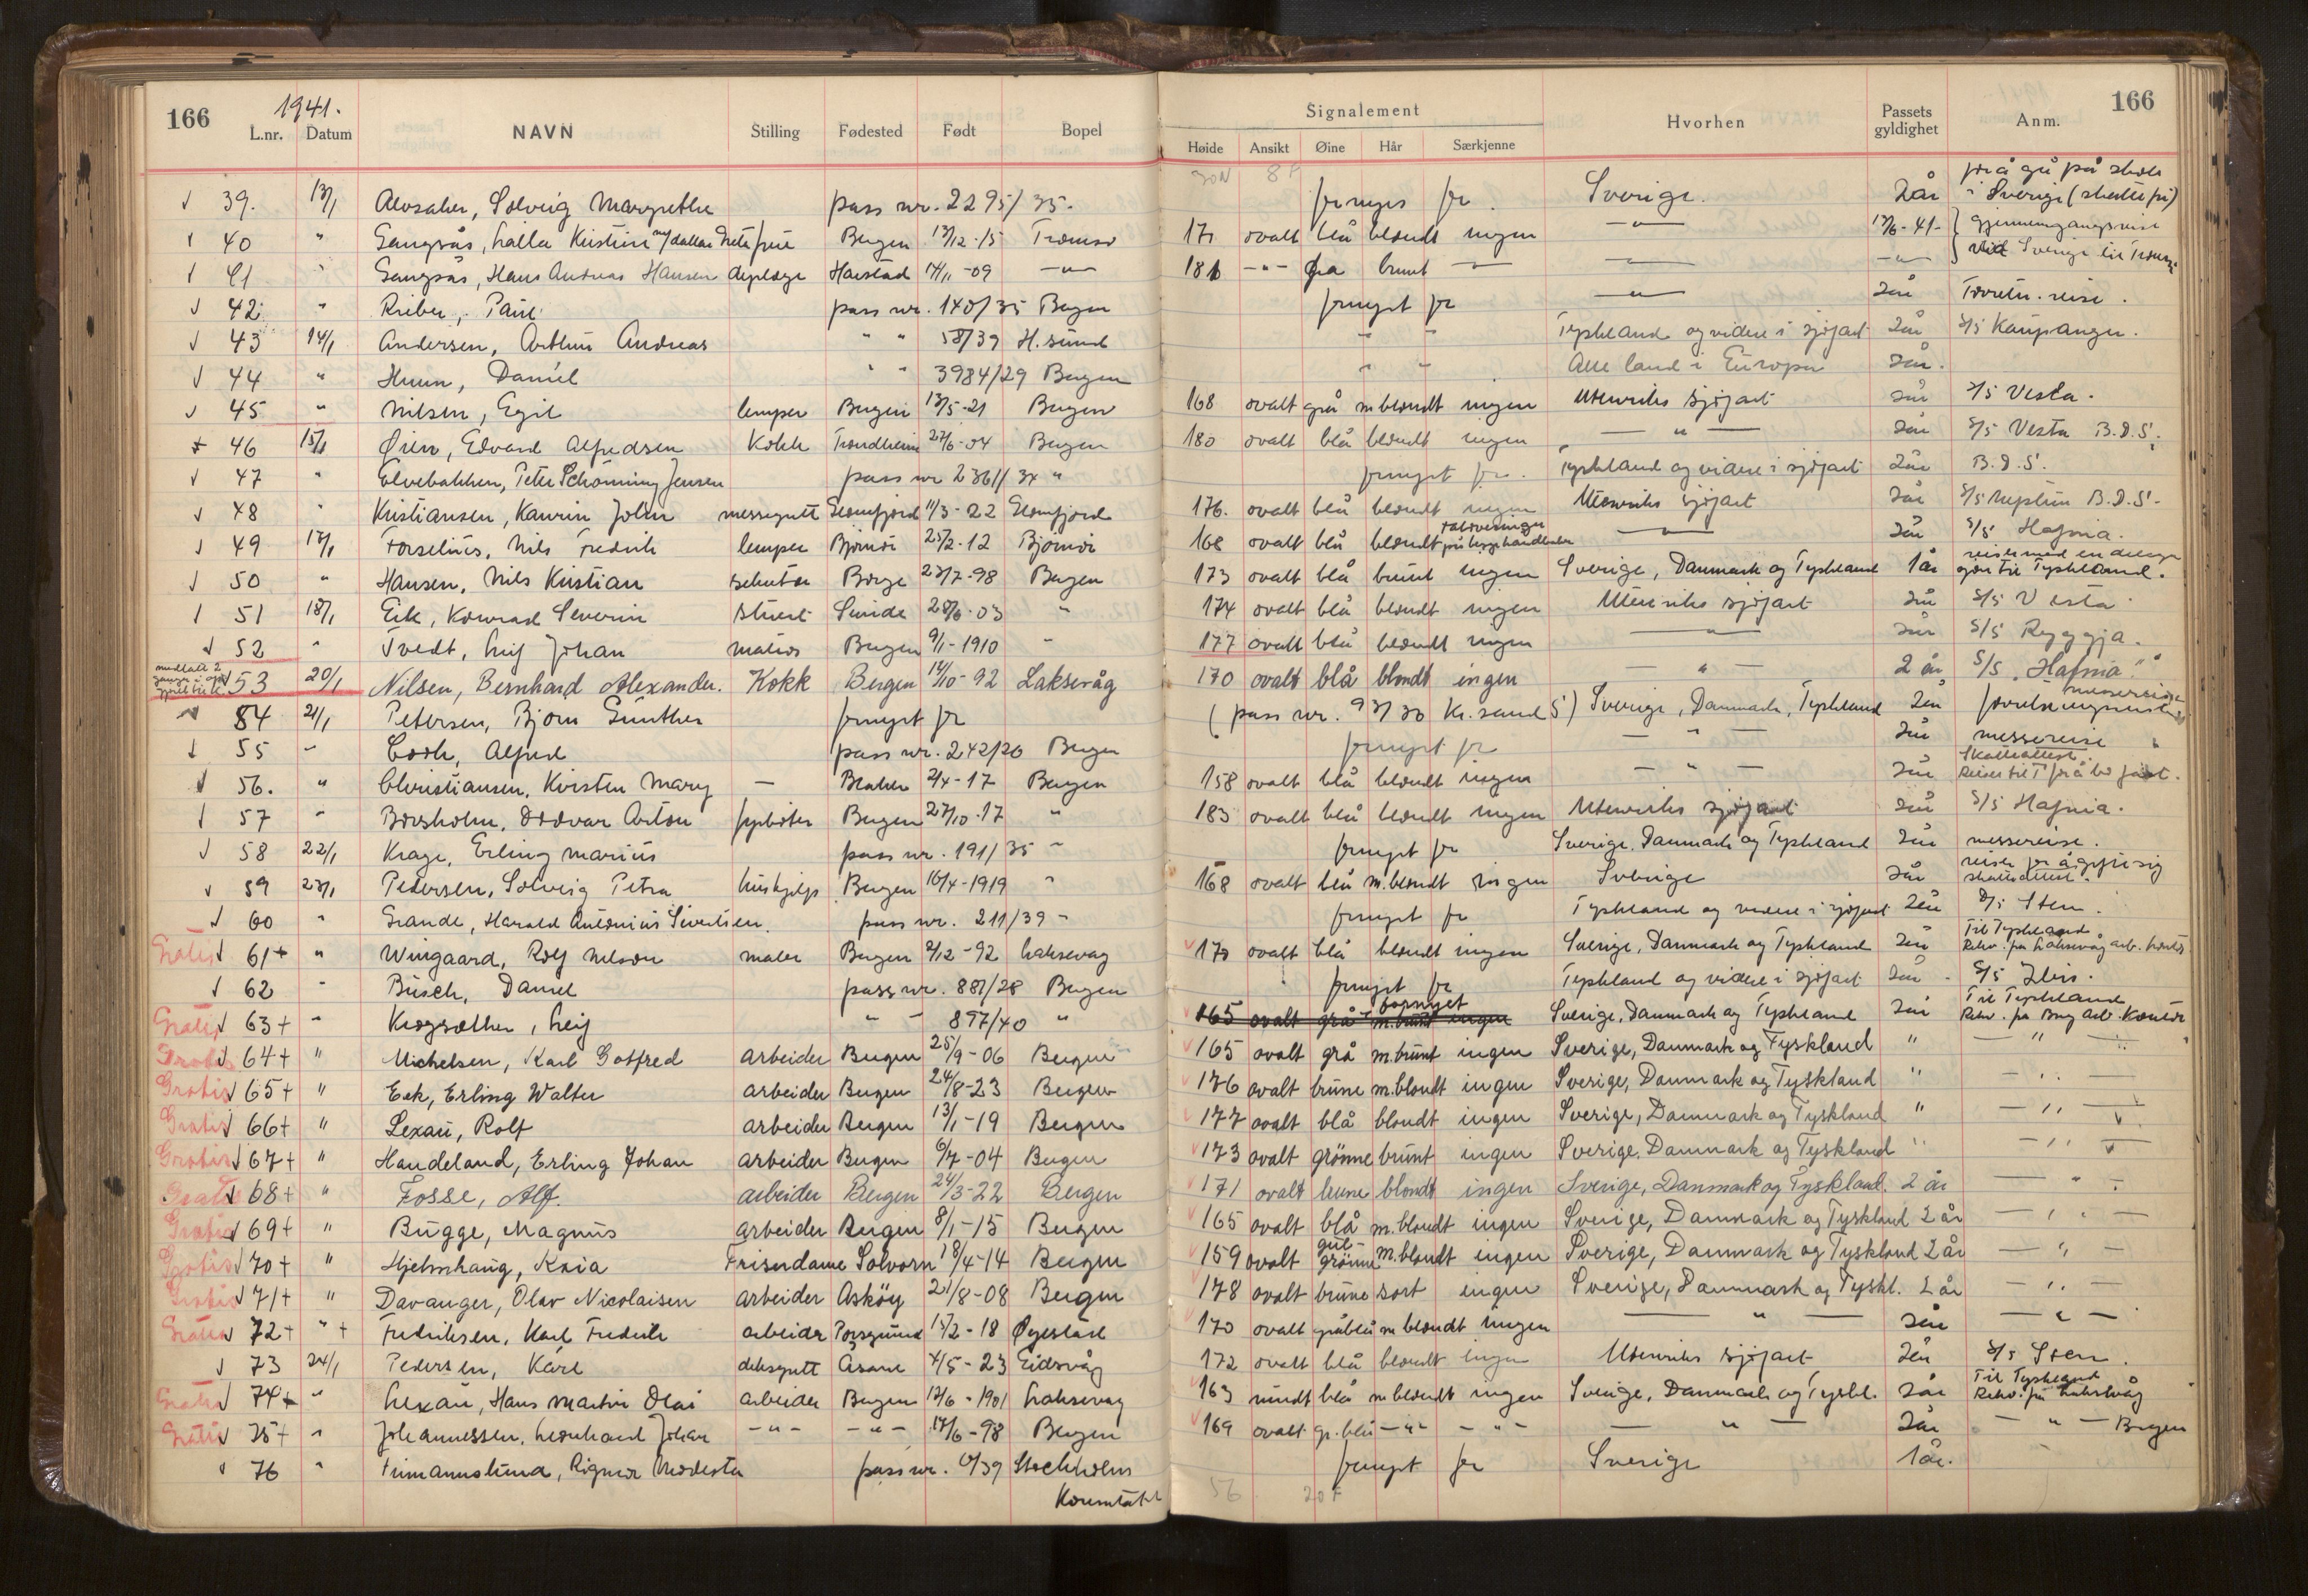 166 1941. Signalement 166
L.nr. Datum NAVN Stilling Fødested Født Bopel Høide Ansikt Øine Hår Særkjenne Hvorhen Passets gyldighet Anm.
39. 13/1 Solveig Margrethe pass nr. 2295/35. fornyes for. Sverige. 2 år for å gå på skole i Sverige
40 " Gangsås, Lalla Kirstine frue Bergen 13/12-15 Tromsø 171 ovalt blå blondt ingen —"— 13/6-41- gjennemgangsreise
41 " Gangsås, Hans Andreas Hansen Harstad 14/11-09 —"— 181 —"— brunt —"— —"— —"— Sverige til Tromsø
42 " Rieber, Paul pass nr. 140/35 Bergen fornyet for —"— 2 år Forretn. reise.
43 14/1 Andersen, Arthur Andreas " " 58/39 H.sund " " Tyskland og videre i sjöfart 2 år S/S Kaupanger.
44 " Huun, Daniel " " 3984/29 Bergen " " Alle land i Europa 2 år.
45 " Nilsen, Egil lemper Bergen 13/5-21 Bergen 168 ovalt grå m.blondt ingen Utenriks sjöfart 2 år S/S Vesta.
46 15/1 Øien, Edvard Alfredsen Kokk Trondheim 27/6-04 Bergen 180 ovalt blå blondt ingen —"— 2 år S/S Vesta B.D.S.
47 " Elvebakken, Peter Schönning Jensen pass nr 2361/34 " fornyet for. Tyskland og videre i sjöfart 2 år B.D.S.
48 " Kristiansen, Kaurin John messegutt Glomfjord 11/3-22 Glomfjord 176. ovalt blå blondt ingen Utenriks sjöfart 2 år S/S Neptun B.D.S.
49 17/1 Forselius, Nils Fredrik lemper Bjørnör 25/2-12 Bjørnör 168 ovalt blå blondt tatoveringer på begge håndledder —"— 2 år S/S Hafnia.
50 " Hansen, Nils Kristian Borge 23/7-98 Bergen 173 ovalt blå brunt ingen Sverige, Danmark og Tyskland 1 år til Tyskland.
51 18/1 Eik, Konrad Severin stuert 28/6-03 " 174 ovalt blå blondt ingen Utenriks sjöfart 2 år S/S Vesta
52 " Tvedt, Leif Johan matros Bergen 9/1-1910 " 177 ovalt blå blondt ingen —"— 2 år S/S
53 20/1 Nilsen, Bernhard Alexander. Kokk Bergen 14/10-92 Laksevåg 170 ovalt blå blondt ingen —"— 2 år S/S "Hafnia".
54 21/1 Petersen, Bjørn Günther fornyet for (pass nr. 93/30 Kr.sand S) Sverige, Danmark, Tyskland 2 år messereise
55 " Cook, Alfred pass nr. 242/20 Bergen fornyet for —"— 2 år messereise
56. " Christiansen, Kirsten Mary — 2/4-17 Bergen 158 ovalt blå blondt ingen —"— 2 år Skatteattest. Reiser til T. for å bo fast.
57 " Borsholm, Oddvar Anton fyrböter Bergen 27/10-17 " 183 ovalt blå blondt ingen Utenriks sjöfart 2 år S/S Hafnia.
58 22/1 Krage, Erling Marius pass nr. 191/35 " fornyet for Sverige, Danmark og Tyskland 2 år messereise.
59 23/1 Pedersen, Solveig Petra hushjelp Bergen 16/4-1919 " 168 ovalt blå m.blondt ingen Sverige 2 år reiser for å gifte sig skatteattest.
60 " Grande, Harald Antonius Sivertsen. pass nr. 211/39 " fornyet for Tyskland og videre i sjöfart 2 år D/S Sten.
Gratis 61+ " Wingaard, Rolf Nelson maler Bergen 2/12-92 Laksevag 170 ovalt blå blondt ingen Sverige, Danmark og Tyskland 2 år Til Tyskland Rekv. fra Laksevåg arb. kontor
62 " Busch, Daniel pass nr. 881/28 Bergen fornyet for Tyskland og videre i sjöfart 2 år S/S Ibis.
Gratis 63+ " Krogsæther, Leif " " 897/40 " 165 ovalt grå m.brunt ingen fornyet Sverige, Danmark og Tyskland 2 år Til Tyskland Rekv. fra Brg arb. kontor
Gratis 64+ " Michelsen, Karl Gotfred arbeider Bergen 25/9-06 Bergen 165 ovalt grå m.brunt ingen Sverige, Danmark og Tyskland " — " —
Gratis 65+ " Eek, Erling Walter arbeider Bergen 24/8-23 Bergen 176 ovalt brune m.blondt ingen Sverige, Danmark og Tyskland " — " —
Gratis 66+ " Lexau, Rolf arbeider Bergen 13/1-19 Bergen 177 ovalt blå blondt ingen Sverige, Danmark og Tyskland " — " —
Gratis 67+ " Haudeland, Erling Johan arbeider Bergen 6/7-04 Bergen 173 ovalt grönne brunt ingen Sverige, Danmark og Tyskland " — " —
Gratis 68+ " Fosse, Alf. arbeider Bergen 24/3-22 Bergen 171 ovalt brune blondt ingen Sverige, Danmark og Tyskland. 2 år — " —
Gratis 69+ " Bugge, Magnus arbeider Bergen 8/1-15 Bergen 165 ovalt blå m.blondt ingen Sverige, Danmark og Tyskland 2 år — " —
Gratis 70+ " Hjelmhaug, Kaia Friserdame Solvorn 18/4-14 Bergen 159 ovalt gul-grönne m.blondt ingen Sverige, Danmark og Tyskland 2 år — " —
Gratis 71+ " Davanger, Olav Nicolaisen arbeider Asköy 21/8-08 Bergen 178 ovalt brune sort ingen Sverige, Danmark og Tyskl. 2 år — " —
Gratis 72+ " + Fredriksen, Karl Fredrik arbeider Porsgrund 15/2-18 Øyestad 170 ovalt gråblå m blondt ingen — " — 2 år — " —
73 24/1 Pedersen, Kåre dekksgutt Åsane 4/5-23 Eidsvåg 172 ovalt blå blondt ingen Utenriks sjöfart 2 år S/S Sten.
Gratis 74+ " Lexau, Hans Martin Olai arbeider Bergen 12/6-1901 Laksevag 163 rundt blå m blondt ingen Sverige, Danmark og Tyskl. 2 år Til Tyskland Rekv. fra Laksevåg
Gratis 75+ " Johannessen, Leonhard Johan —"— —"— 17/6-98 Bergen 169 ovalt gr.blå —"— —"— — " — 2 år — " — Bergen
76 " Rigmor Modesta pass nr. 6/39 Stockholm fornyet for Sverige 1 år.
56 20 F